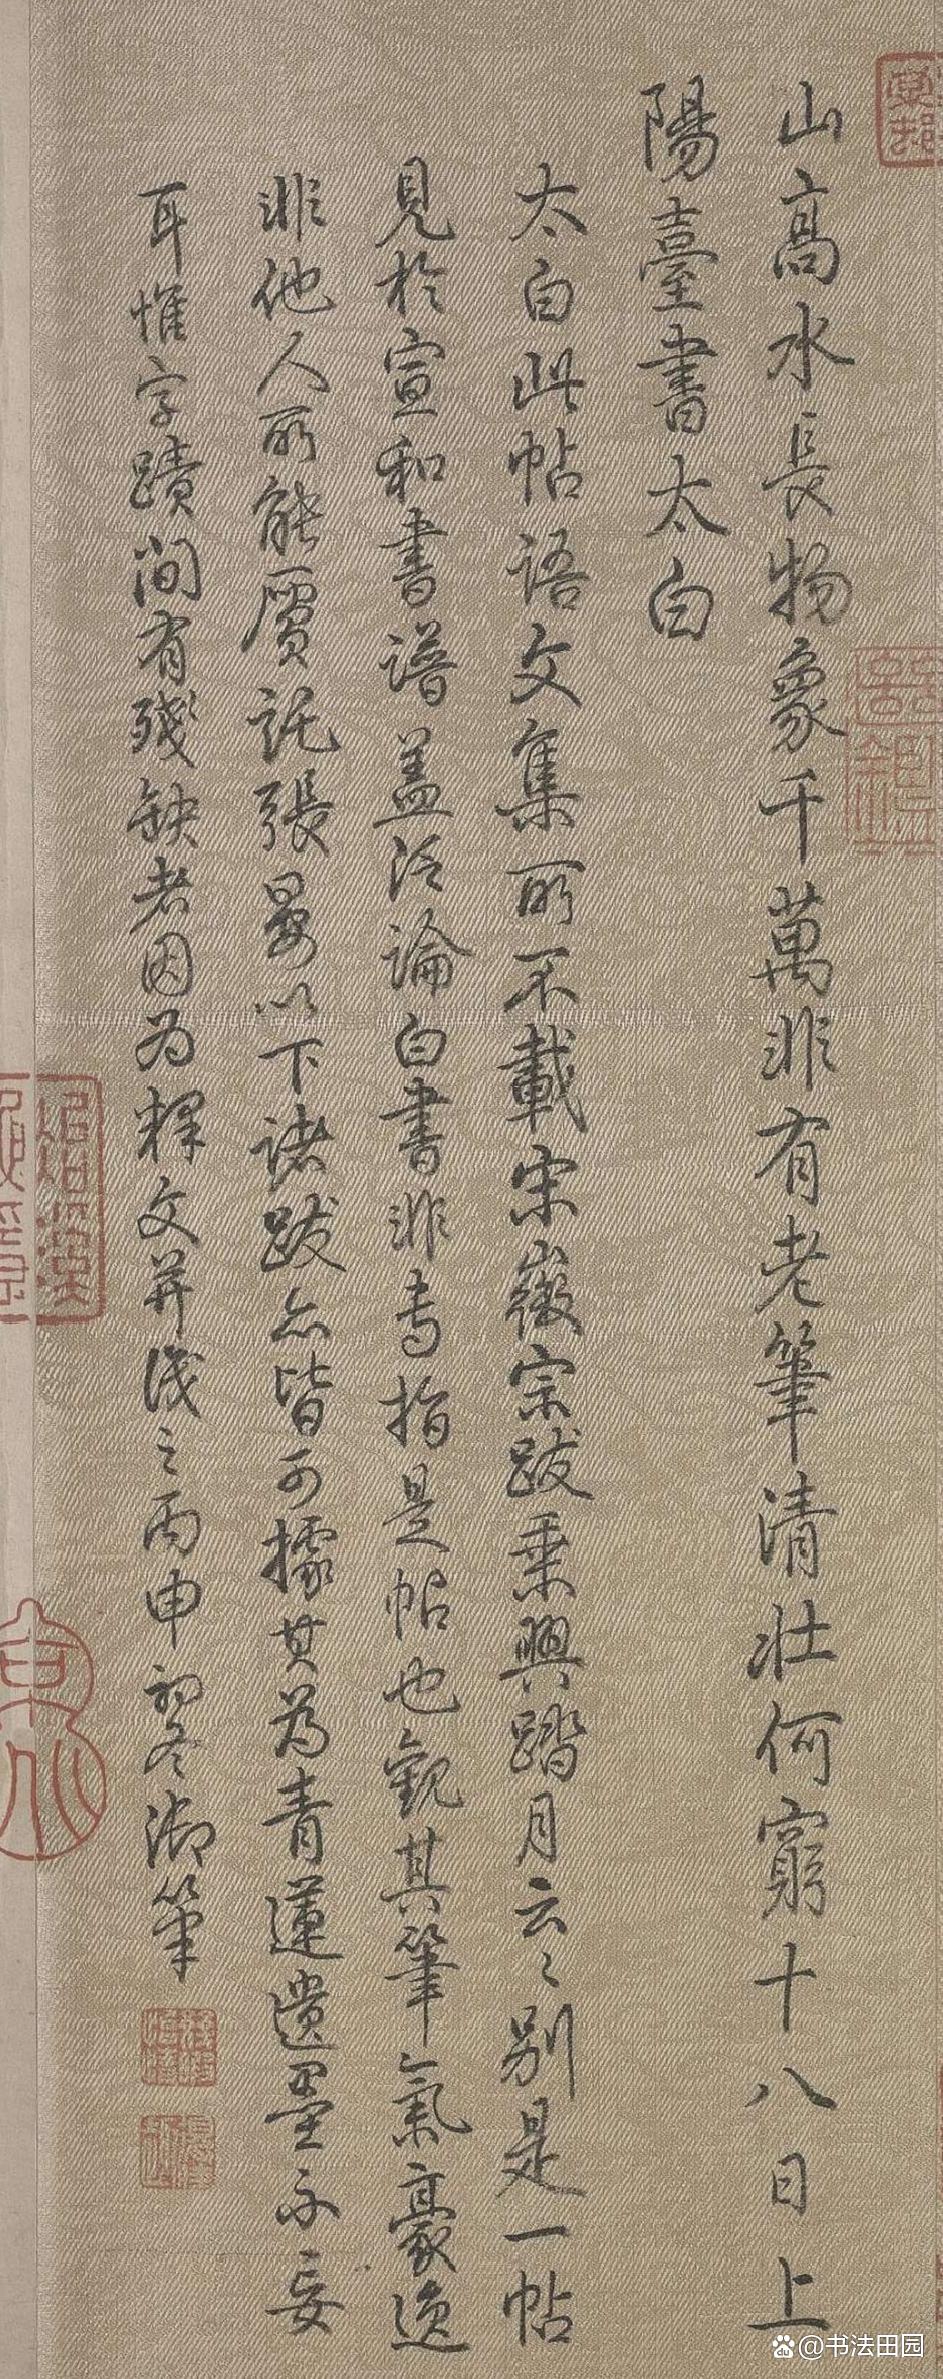 山高水長物象千萬非有老筆清壯何窮十八日上
陽臺書太白
太白此帖語文集所不載宋徽宗跋乘興踏月云〻別是一帖
見於宣和書譜盖泛論白書非専指是帖也觀其筆氣豪逸
非他人所能贋託張晏以下諸跋亦皆可據其為青蓮遺墨不妄
耳惟字蹟間有殘缺者因为釋文并識之丙申初冬御筆
@书法田园